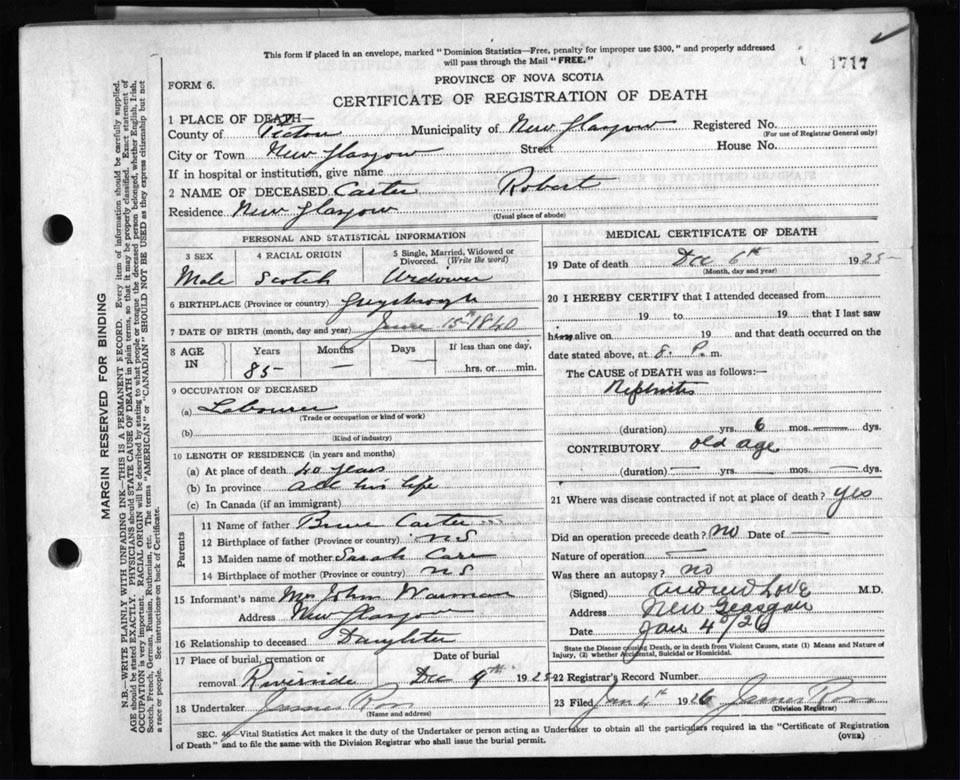 This form if placed in an envelope, marked "Dominion Statistics—Free, penalty for improper use $300," and properly addressed
will pass through the Mail "FREE."
1717
FORM 6.
PROVINCE OF NOVA SCOTIA
CERTIFICATE OF REGISTRATION OF DEATH
1 PLACE OF DEATH
County of Pictou Municipality of New Glasgow Registered No.
(For use of Registrar General only)
City or Town New Glasgow Street House No.
If in hospital or institution, give name
2 NAME OF DECEASED Carter Robert
Residence New Glasgow
(Usual place of abode)
PERSONAL AND STATISTICAL INFORMATION
3 SEX 4 RACIAL ORIGIN 5 Single, Married, Widowed or
Divorced. (Write the word)
Male Scotch Widower
6 BIRTHPLACE (Province or country) Guysborough
7 DATE OF BIRTH (month, day and year) June 15th 1840
8 AGE IN Years Months Days If less than one day,
85 — — hrs. or min.
9 OCCUPATION OF DECEASED
(a) Labourer
(Trade or occupation or kind of work)
(b)
(Kind of industry)
10 LENGTH OF RESIDENCE (in years and months)
(a) At place of death 40 years
(b) In province all his life
(c) In Canada (if an immigrant)
Parents
11 Name of father Carter
12 Birthplace of father (Province or country) N S
13 Maiden name of mother Sarah
14 Birthplace of mother (Province or country) N S
15 Informant's name Mrs John
Address New Glasgow
16 Relationship to deceased Daughter
17 Place of burial, cremation or removal Riverside
Date of burial
Dec 9th 1925
18 Undertaker James Ross
(Name and address)
MEDICAL CERTIFICATE OF DEATH
19 Date of death Dec 6th 1925
(Month, day and year)
20 I HEREBY CERTIFY that I attended deceased from
19 to 19 that I last saw
him alive on 19 and that death occurred on
date stated above, at 8. P. m.
The CAUSE of DEATH was as follows:—
Nephritis
(duration) yrs. 6 mos. — dys.
CONTRIBUTORY old age
(duration) — yrs. — mos. — dys.
21 Where was disease contracted if not at place of death? yes
Did an operation precede death? no Date of —
Nature of operation —
Was there an autopsy? no
(Signed) Andrew Love M.D.
Address New Glasgow
Date Jan 4/26
State the Disease causing Death, or in death from Violent Causes, state (1) Means and Nature of
Injury, (2) whether Accidental, Suicidal or Homicidal.
22 Registrar's Record Number
23 Filed Jan 4th 1926 James Ross
(Division Registrar)
SEC. 46—Vital Statistics Act makes it the duty of the Undertaker or person acting as Undertaker to obtain all the particulars required in the "Certificate of Registration
of Death" and to file the same with the Division Registrar who shall issue the burial permit.
(OVER)
MARGIN RESERVED FOR BINDING
N.B.—WRITE PLAINLY WITH UNFADING INK—THIS IS A PERMANENT RECORD. Every item of information should be carefully supplied.
AGE should be stated EXACTLY. PHYSICIANS should STATE CAUSE OF DEATH in plain terms, so that it may be properly classified. Exact statement of
OCCUPATION is very important. RACIAL ORIGIN will be described by stating to what people or tongue the deceased person belonged, whether English, Irish,
Scotch, French, German, Russian, Ruthenian, etc. The terms "AMERICAN" or "CANADIAN" SHOULD NOT BE USED as they express citizenship but not
a race or people. See instructions on back of Certificate.